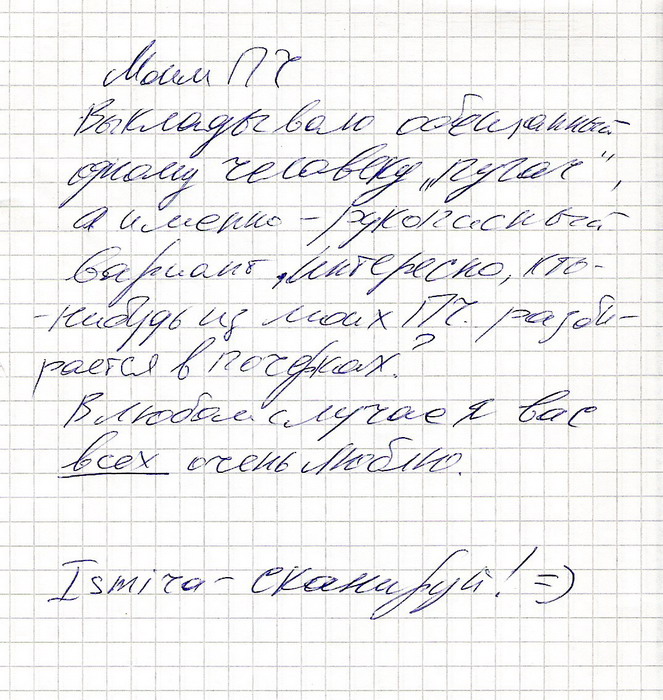 Моим ПЧ
Выкладываю обещанный
одному человеку „пугач“,
а именно - рукописный
вариант. Интересно, кто-
-нибудь из моих ПЧ. разби-
рается в почерках?
В любом случае я вас
всех очень люблю.
Ismira - сканируй! =)